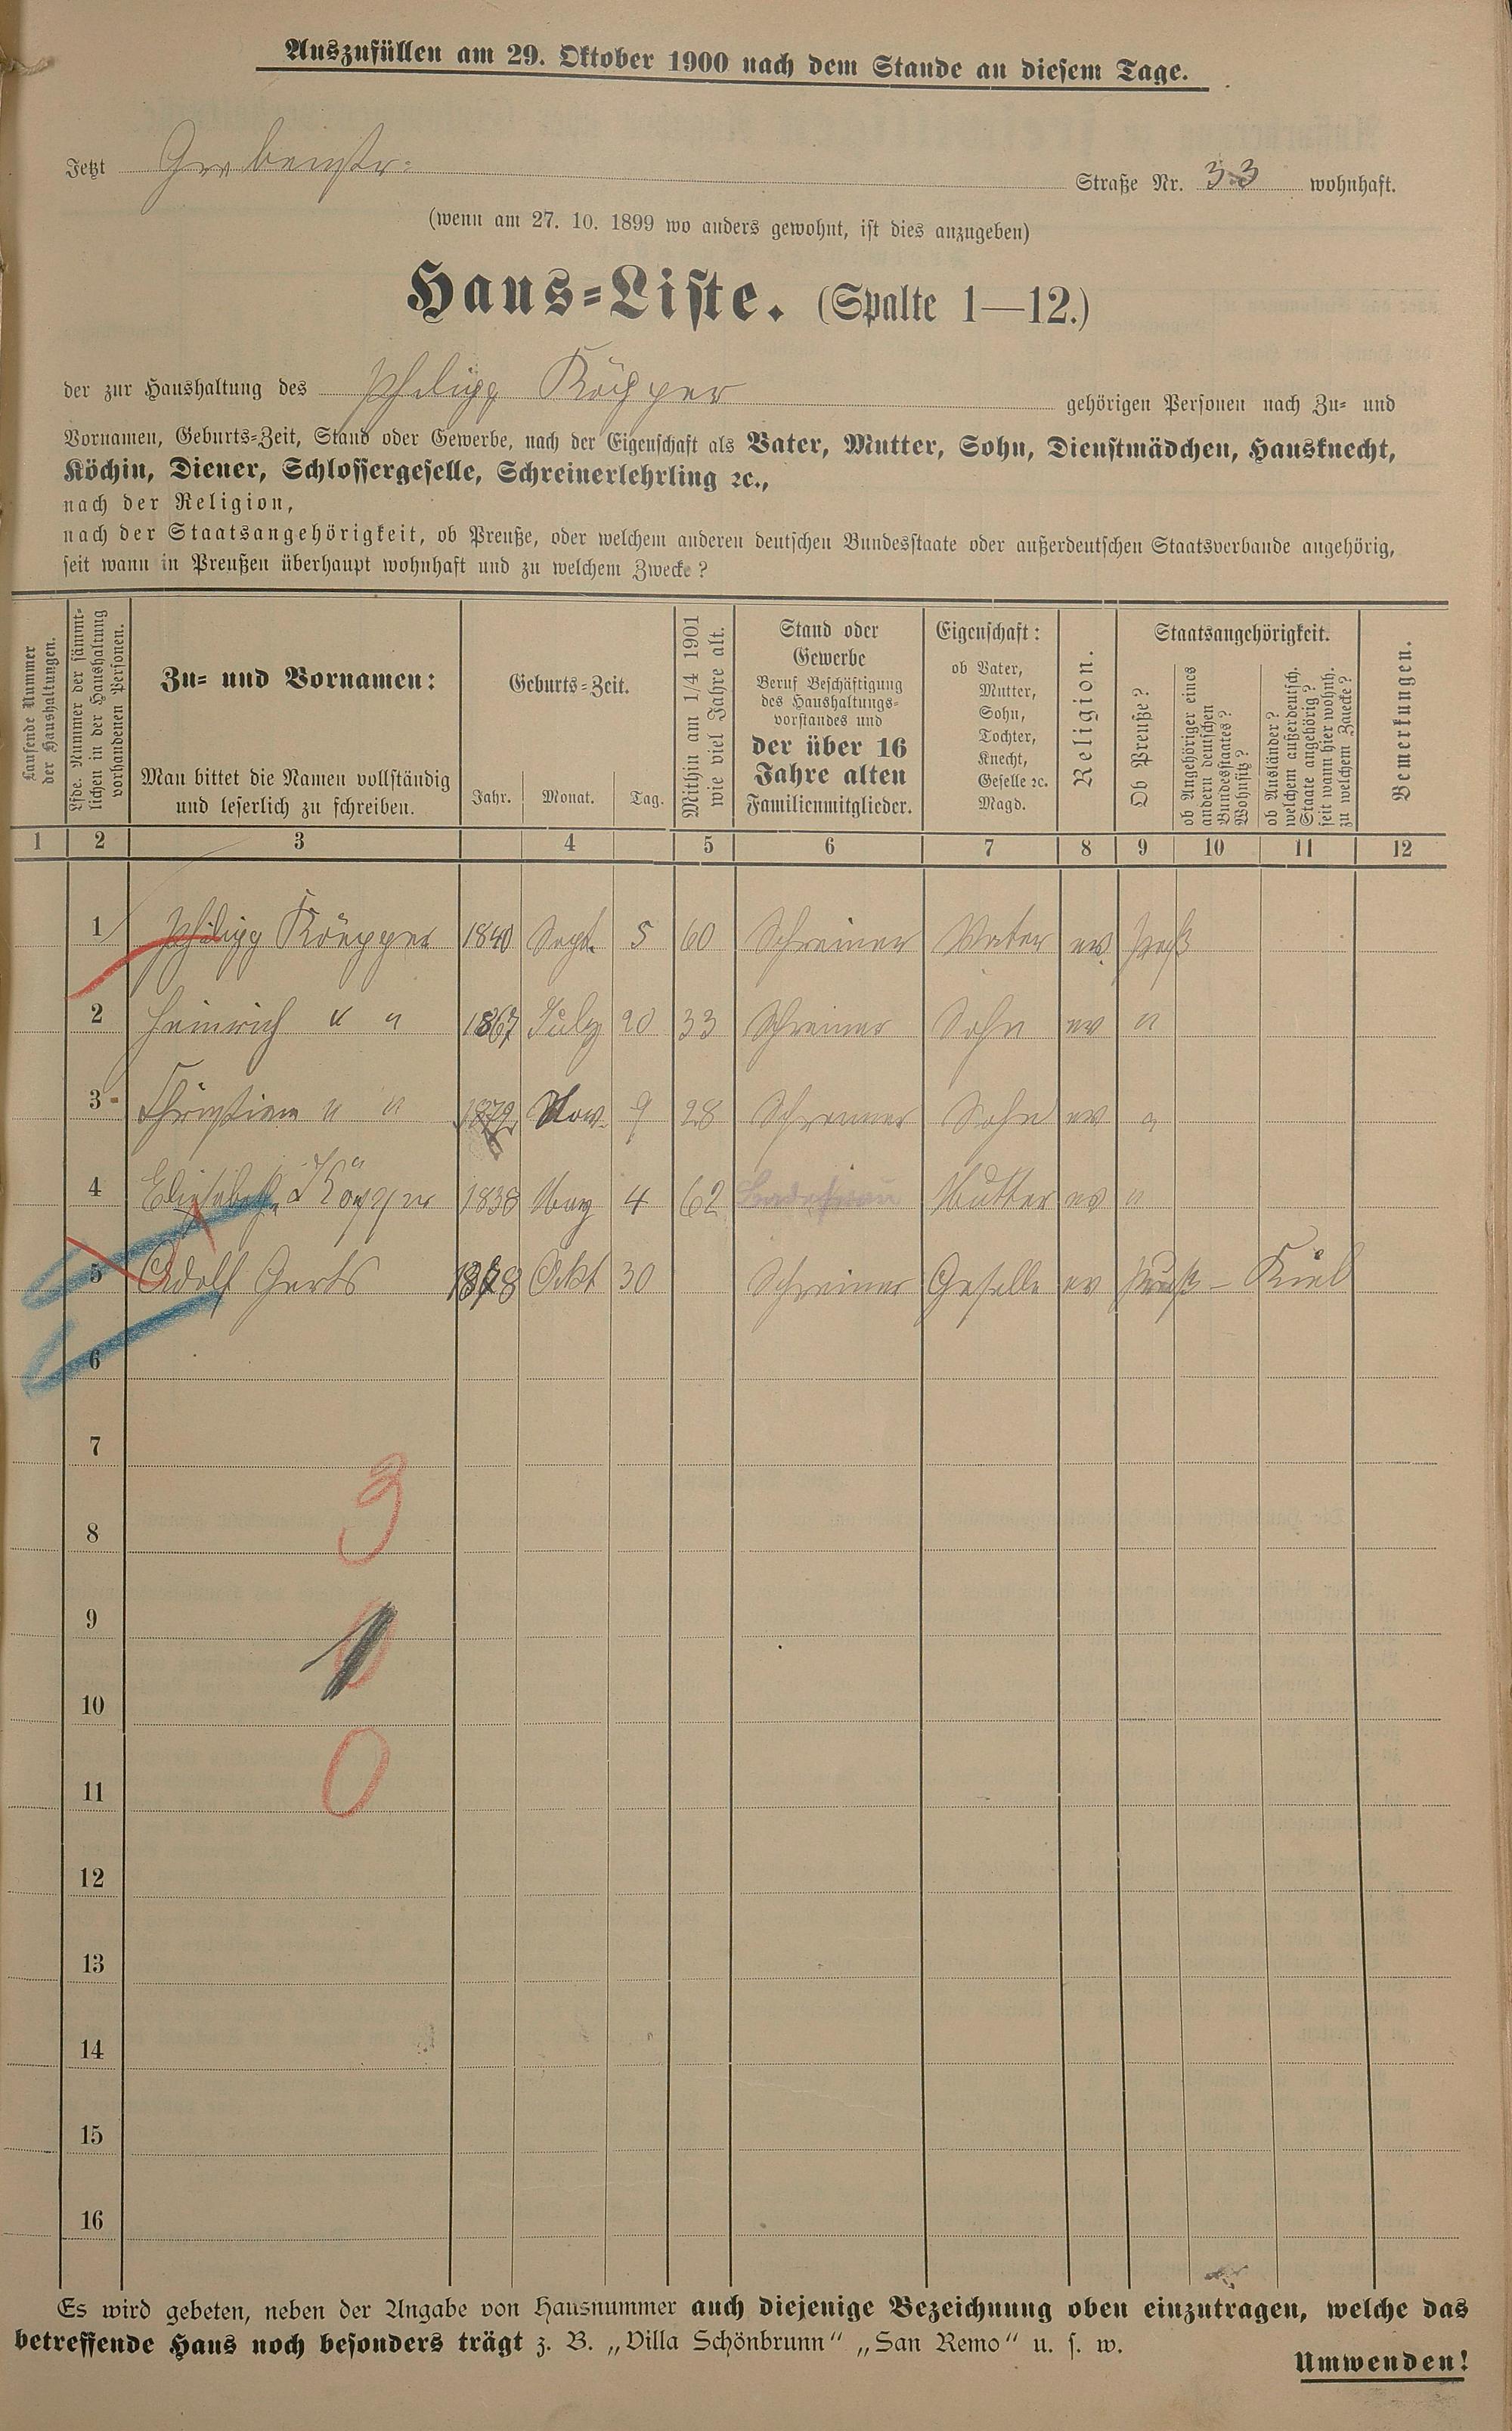 Auszufüllen am 29. Oktober 1900 nach dem Stande an diesem Tage.
Jetzt Grabenstr. Straße Nr. 33 wohnhaft.
(wenn am 27. 10. 1899 wo anders gewohnt, ist dies anzugeben)
Haus-Liste. (Spalte 1—12.)
der zur Haushaltung des Philipp Köpper gehörigen Personen nach Zu- und
Vornamen, Geburts-Zeit, Stand oder Gewerbe, nach der Eigenschaft als Vater, Mutter, Sohn, Dienstmädchen, Hausknecht,
Köchin, Diener, Schlossergeselle, Schreinerlehrling ꝛc.,
nach der Religion,
nach der Staatsangehörigkeit, ob Preuße, oder welchem anderen deutschen Bundesstaate oder außerdeutschen Staatsverbande angehörig,
seit wann in Preußen überhaupt wohnhaft und zu welchem Zwecke?
Laufende Nummer
der Haushaltungen.
Lfde. Nummer der sämmt-
lichen in der Haushaltung
vorhandenen Personen.
Zu- und Vornamen:
Man bittet die Namen vollständig
und leserlich zu schreiben.
Geburts-Zeit.
Jahr. Monat. Tag.
Mithin am 1/4 1901
wie viel Jahre alt.
Stand oder
Gewerbe
Beruf Beschäftigung
des Haushaltungs-
vorstandes und
der über 16
Jahre alten
Familienmitglieder.
Eigenschaft:
ob Vater,
Mutter,
Sohn,
Tochter,
Knecht,
Geselle ꝛc.
Magd.
Religion.
Staatsangehörigkeit.
Ob Preuße?
ob Angehöriger eines
andern deutschen
Bundesstaates?
Wohnsitz?
ob Ausländer?
welchem außerdeutsch.
Staate angehörig?
seit wann hier wohnh.
zu welchem Zwecke?
Bemerkungen.
1 2 3 4 5 6 7 8 9 10 11 12
1 Philipp Köpper 1840 Sept. 5 60 Schreiner Vater ev. Preß
2 Heinrich " " 1867 July 20 33 Schreiner Sohn ev "
3 Christian " " Nov. 9 28 Schreiner Sohn ev "
4 Elisabeth Köpper 1838 May 4 62 Mutter ev "
5 Adolf Gerts 1878 Okt 30 Schreiner Geselle ev Preuß - Kiel
6
7
3
8
9
10
0
11
12
13
14
15
16
Es wird gebeten, neben der Angabe von Hausnummer auch diejenige Bezeichnung oben einzutragen, welche das
betreffende Haus noch besonders trägt z. B. „Villa Schönbrunn“ „San Remo“ u. s. w.
Umwenden!